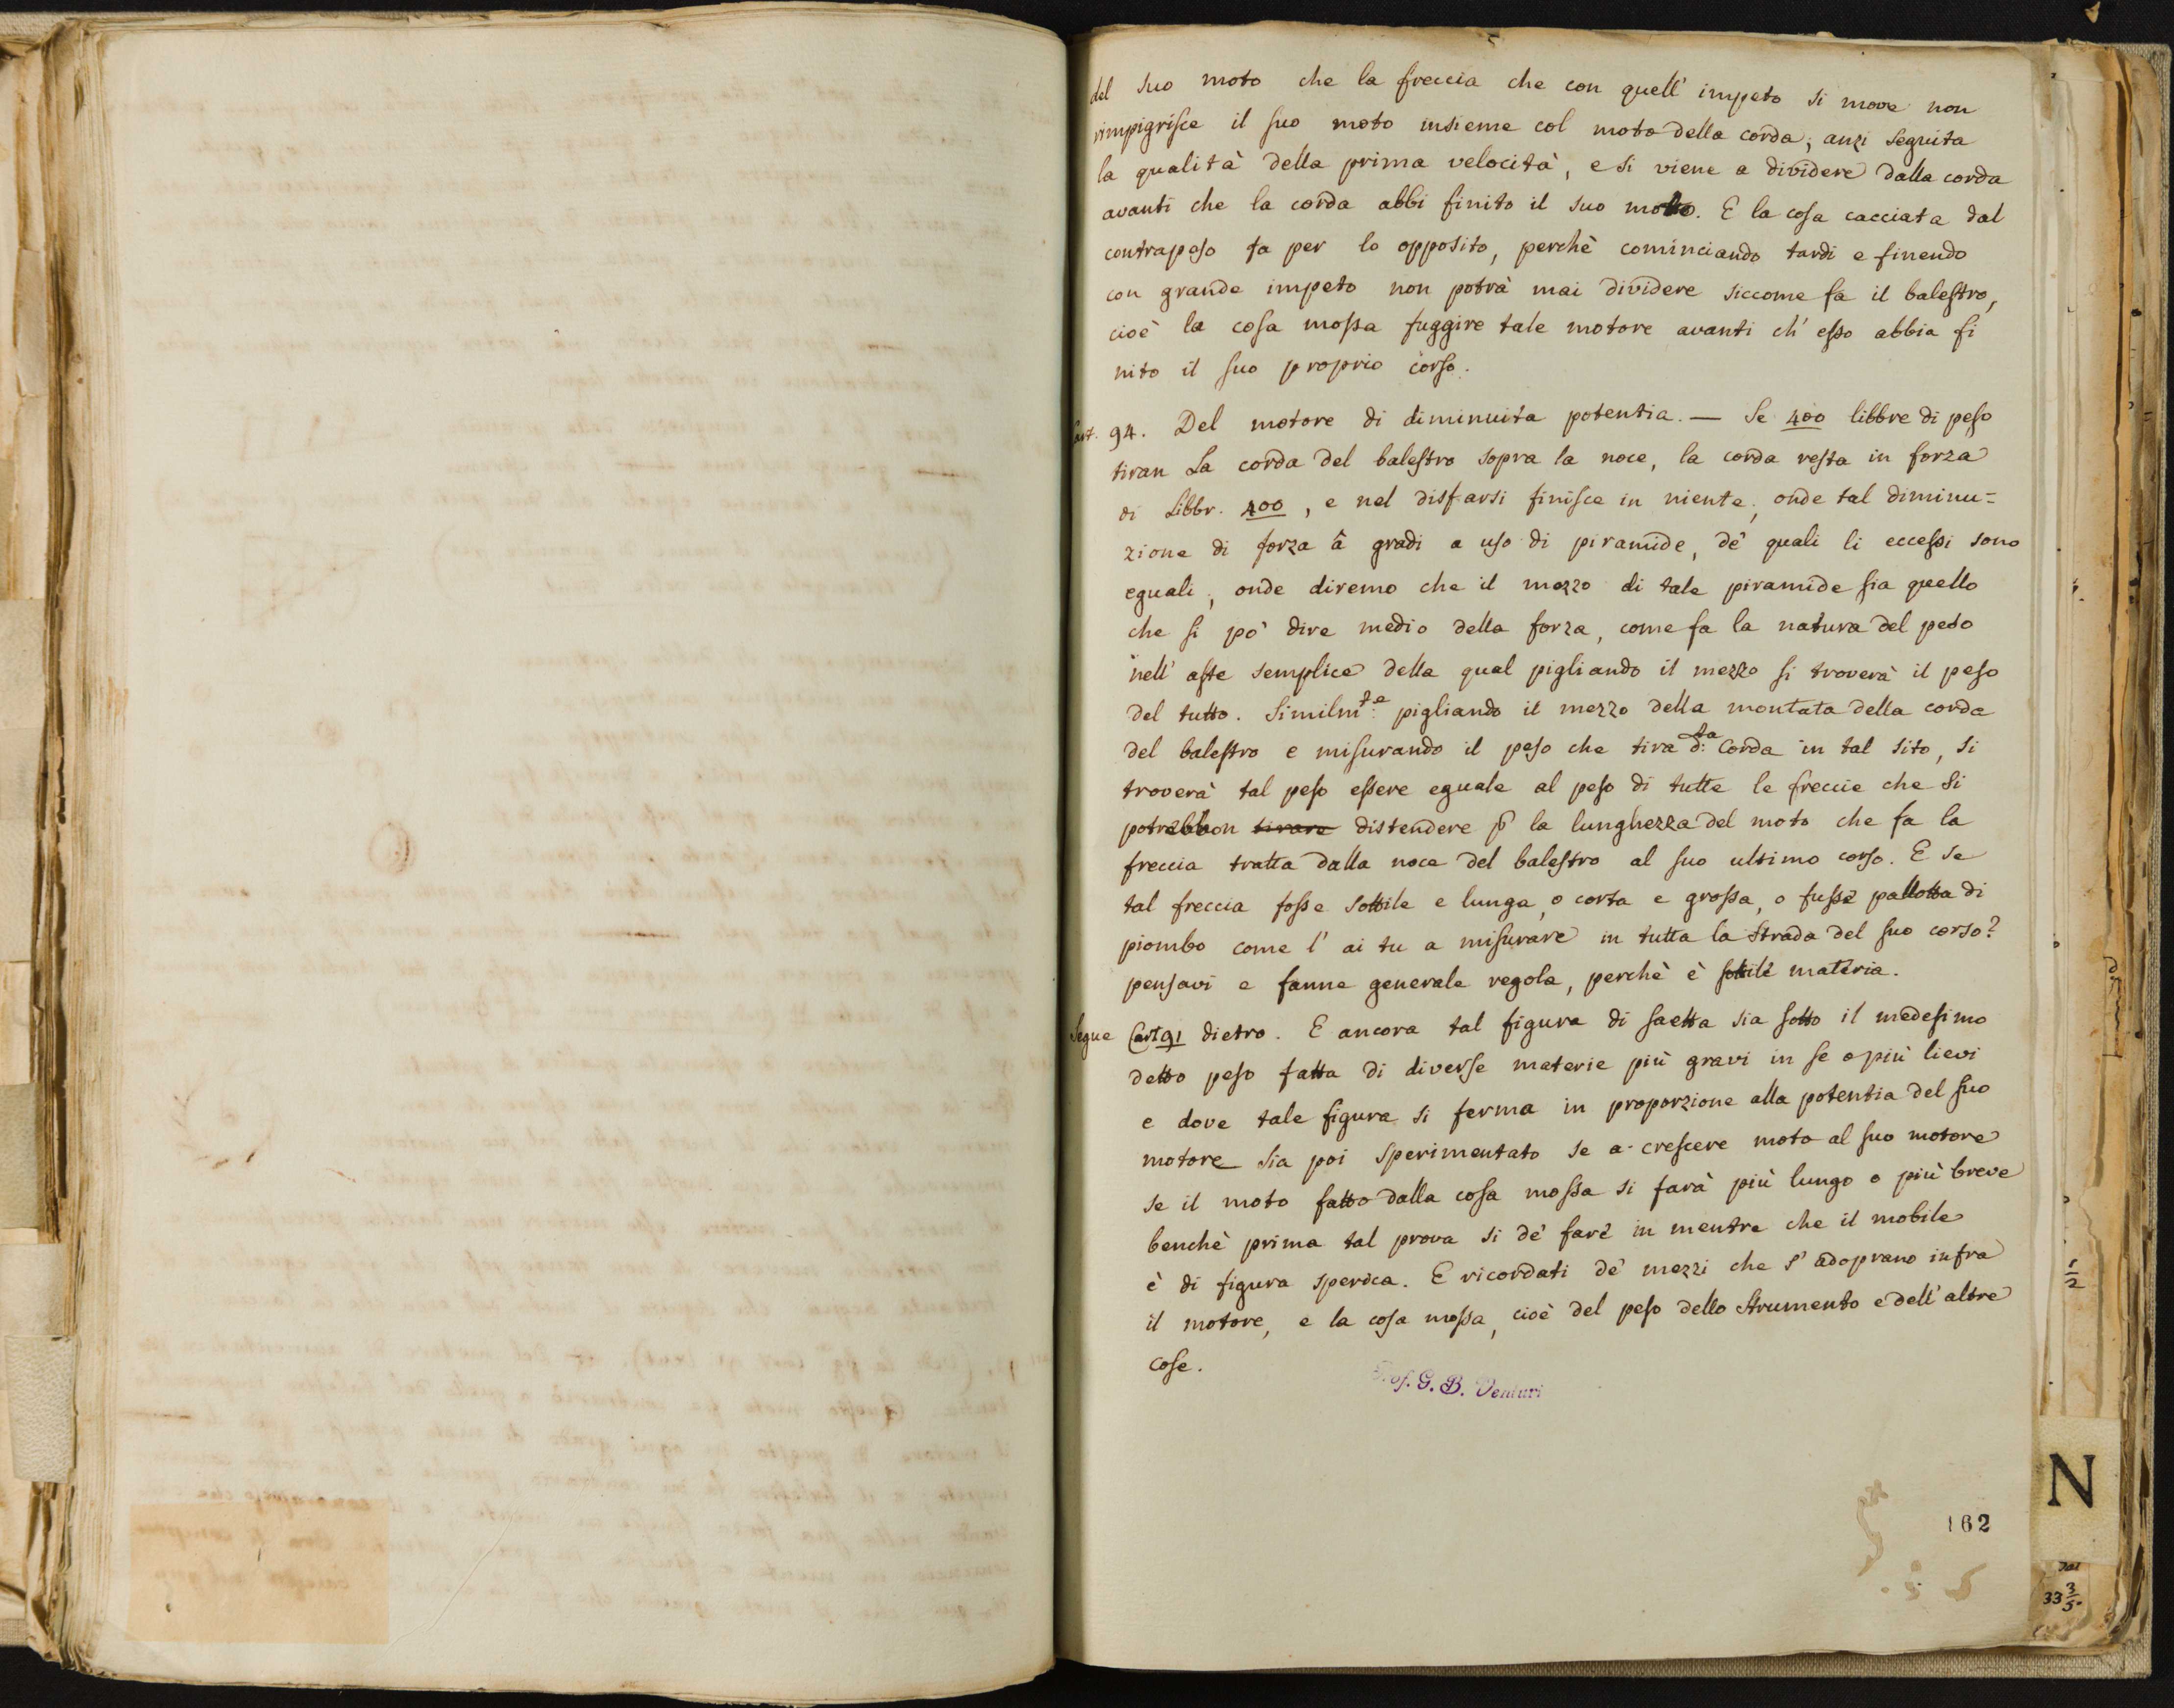 del suo moto che la freccia che con quell' impeto si move non
rimpigrisce il suo moto insieme col moto della corda; anzi seguita
la qualità della prima velocità, e si viene a dividere dalla corda
avanti che la corda abbi finito il suo moto. E la cosa cacciata dal
contrapeso fa per lo opposito, perchè cominciando tardi e finendo
con grande impeto non potrà mai dividere siccome fa il balestro,
cioè la cosa mossa fuggire tale motore avanti ch' esso abbia fi
nito il suo proprio corso.
Cart. 94. Del motore di diminuita potentia. — Se 400 libbre di peso
tiran La corda del balestro sopra la noce, la corda resta in forza
di Libbr. 400, e nel disfarsi finisce in niente; onde tal diminu=
zione di forza â gradi a uso di piramide, de' quali li eccessi sono
eguali; onde diremo che il mezzo di tale piramide sia quello
che si pò dire medio della forza, come fa la natura del peso
nell' aste semplice della qual pigliando il mezzo si troverà il peso
del tutto. Similmte: pigliando il mezzo della montata della corda
del balestro e misurando il peso che tira d:ta Corda in tal sito, si
troverà tal peso essere eguale al peso di tutte le freccie che si
potrebbon tirare distendere p la lunghezza del moto che fa la
freccia tratta dalla noce del balestro al suo ultimo corso. E se
tal freccia fosse sottile e lunga, o corta e grossa, o fusse pallotta di
piombo come l' ai tu a misurare in tutta la strada del suo corso?
pensavi e fanne generale regola, perchè è sottile materia.
Segue Cart 91 dietro. E ancora tal figura di saetta sia sotto il medesimo
detto peso fatta di diverse materie più gravi in se o più lievi
e dove tale figura si ferma in proporzione alla potentia del suo
motore sia poi sperimentato se a crescere moto al suo motore
se il moto fatto dalla cosa mossa si farà più lungo o più breve
benchè prima tal prova si de' fare in mentre che il mobile
è di figura sperica. E ricordati de' mezzi che s' adoprano infra
il motore, e la cosa mossa, cioè del peso dello Strumento e dell' altre
cose.
Prof. G. B. Venturi
162
N
1/2
33 3/5